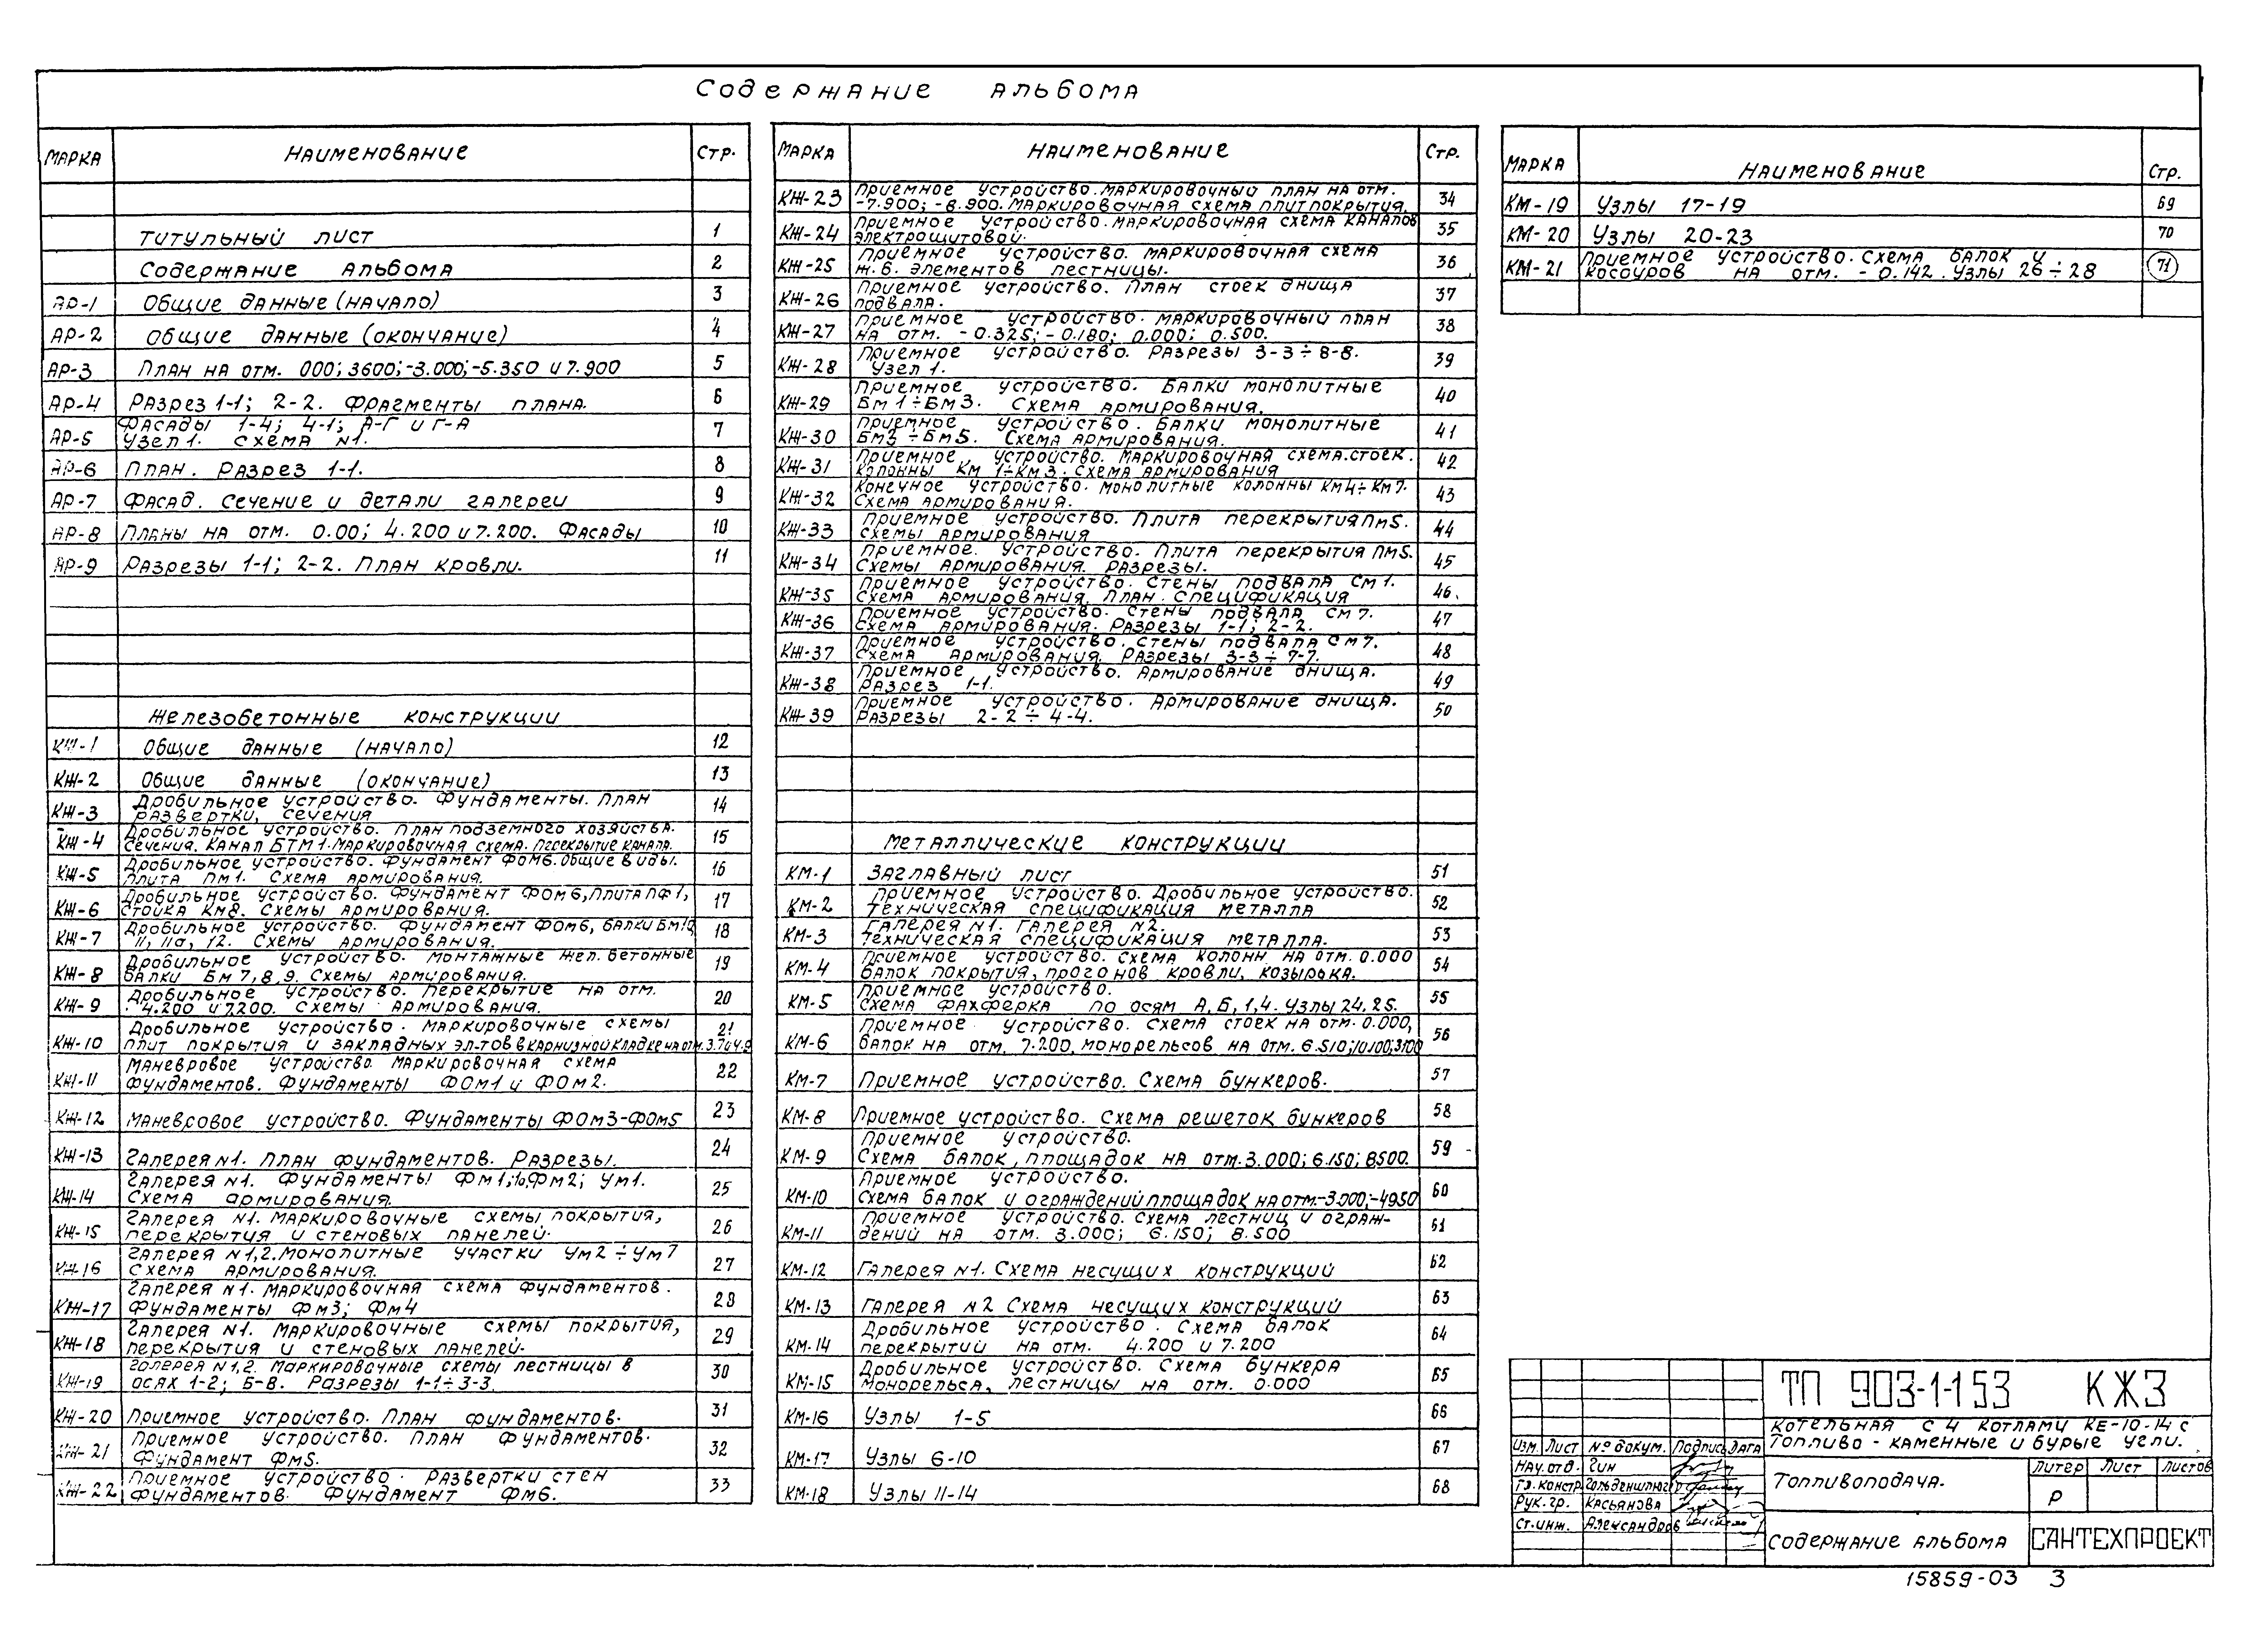 Содержание альбома
Марка Наименование Стр.
Титульный лист 1
Содержание альбома 2
АР-1 Общие данные (начало) 3
АР-2 Общие данные (окончание) 4
АР-3 План на отм. 000; 3600; -3.000; -5.350 и 7.900 5
АР-4 Разрез 1-1; 2-2. Фрагменты плана. 6
АР-5 Фасады 1-4; 4-1; А-Г и Г-А
Узел 1. Схема N1. 7
АР-6 План. Разрез 1-1. 8
АР-7 Фасад. Сечение и детали галереи 9
АР-8 Планы на отм. 0.00; 4.200 и 7.200. Фасады 10
АР-9 Разрезы 1-1; 2-2. План кровли. 11
Железобетонные конструкции
КЖ-1 Общие данные (начало) 12
КЖ-2 Общие данные (окончание) 13
КЖ-3 Дробильное устройство. Фундаменты. План
развертки, сечения 14
КЖ-4 Дробильное устройство. План подземного хозяйства.
Сечения. Канал БТМ1. Маркировочная схема. Перекрытие канала. 15
КЖ-5 Дробильное устройство. Фундамент ФОм6. Общие виды.
Плита Пм1. Схема армирования. 16
КЖ-6 Дробильное устройство. Фундамент ФОм6, плита ПФ1,
стойка Км8. Схемы армирования. 17
КЖ-7 Дробильное устройство. Фундамент ФОм6, балки Бм10,
11, 11а, 12. Схемы армирования. 18
КЖ-8 Дробильное устройство. Монтажные жел. бетонные
балки Бм 7, 8, 9. Схемы армирования. 19
КЖ-9 Дробильное устройство. Перекрытие на отм.
4.200 и 7.200. Схемы армирования. 20
КЖ-10 Дробильное устройство. Маркировочные схемы
плит покрытия и закладных эл-тов в карнизной кладке на отм. 21
КЖ-11 Маневровое устройство. Маркировочная схема
фундаментов. Фундаменты ФОм1 и ФОм2. 22
КЖ-12 Маневровое устройство. Фундаменты ФОм3-ФОм5 23
КЖ-13 Галерея N1. План фундаментов. Разрезы. 24
КЖ-14 Галерея N1. Фундаменты Фм1; Фм2; Ум1.
Схема армирования. 25
КЖ-15 Галерея N1. Маркировочные схемы покрытия,
перекрытия и стеновых панелей. 26
КЖ-16 Галерея N1,2. Монолитные участки Ум2÷Ум7
Схема армирования. 27
КЖ-17 Галерея N1. Маркировочная схема фундаментов.
Фундаменты Фм3; Фм4 28
КЖ-18 Галерея N1. Маркировочные схемы покрытия,
перекрытия и стеновых панелей. 29
КЖ-19 Галерея N1,2. Маркировочные схемы лестницы в
осях 1-2; Б-В. Разрезы 1-1÷3-3. 30
КЖ-20 Приемное устройство. План фундаментов. 31
КЖ-21 Приемное устройство. План фундаментов.
Фундамент Фм5. 32
КЖ-22 Приемное устройство. Развертки стен
фундаментов. Фундамент Фм6. 33
Марка Наименование Стр.
КЖ-23 Приемное устройство. Маркировочный план на отм.
-7.900; -8.900. Маркировочная схема плит покрытия. 34
КЖ-24 Приемное устройство. Маркировочная схема каналов
электрощитовой. 35
КЖ-25 Приемное устройство. Маркировочная схема
ж.б. элементов лестницы. 36
КЖ-26 Приемное устройство. План стоек днища
подвала. 37
КЖ-27 Приемное устройство. Маркировочный план
на отм. -0.325; -0.180; 0.000; 0.500. 38
КЖ-28 Приемное устройство. Разрезы 3-3÷8-8.
Узел 1. 39
КЖ-29 Приемное устройство. Балки монолитные
Бм1÷Бм3. Схема армирования. 40
КЖ-30 Приемное устройство. Балки монолитные
Бм3÷Бм5. Схема армирования. 41
КЖ-31 Приемное устройство. Маркировочная схема стоек.
Колонны Км1÷Км3. Схема армирования 42
КЖ-32 Конечное устройство. Монолитные колонны Км4÷Км7.
Схема армирования. 43
КЖ-33 Приемное устройство. Плита перекрытия Пм5.
Схемы армирования 44
КЖ-34 Приемное устройство. Плита перекрытия Пм5.
Схемы армирования. Разрезы. 45
КЖ-35 Приемное устройство. Стены подвала См1.
Схема армирования. План. Спецификация 46
КЖ-36 Приемное устройство. Стены подвала См7.
Схема армирования. Разрезы 1-1; 2-2. 47
КЖ-37 Приемное устройство. Стены подвала См7.
Схема армирования. Разрезы 3-3÷7-7. 48
КЖ-38 Приемное устройство. Армирование днища.
Разрез 1-1. 49
КЖ-39 Приемное устройство. Армирование днища.
Разрезы 2-2÷4-4. 50
Металлические конструкции
КМ-1 Заглавный лист 51
КМ-2 Приемное устройство. Дробильное устройство.
Техническая спецификация металла 52
КМ-3 Галерея N1. Галерея N2.
Техническая спецификация металла. 53
КМ-4 Приемное устройство. Схема колонн на отм. 0.000
балок покрытия, прогонов кровли, козырька. 54
КМ-5 Приемное устройство.
Схема фахферка по осям А, Б, 1, 4. Узлы 24, 25. 55
КМ-6 Приемное устройство. Схема стоек на отм. 0.000,
балок на отм. 7.200, монорельсов на отм. 6.510; 10.100; 3.100 56
КМ-7 Приемное устройство. Схема бункеров. 57
КМ-8 Приемное устройство. Схема решеток бункеров 58
КМ-9 Приемное устройство.
Схема балок, площадок на отм. 3.000; 6.150; 8500. 59
КМ-10 Приемное устройство.
Схема балок и ограждений площадок на отм. -3.000; -4950 60
КМ-11 Приемное устройство. Схема лестниц и ограж-
дений на отм. 3.000; 6.150; 8.500 61
КМ-12 Галерея N1. Схема несущих конструкций 62
КМ-13 Галерея N2 Схема несущих конструкций 63
КМ-14 Дробильное устройство. Схема балок
перекрытий на отм. 4.200 и 7.200 64
КМ-15 Дробильное устройство. Схема бункера
монорельса, лестницы на отм. 0.000 65
КМ-16 Узлы 1-5 66
КМ-17 Узлы 6-10 67
КМ-18 Узлы 11-14 68
Марка Наименование Стр.
КМ-19 Узлы 17-19 69
КМ-20 Узлы 20-23 70
КМ-21 Приемное устройство. Схема балок и
косоуров на отм. -0.142. Узлы 26÷28 71
ТП 903-1-153 КЖ3
Котельная с 4 котлами КЕ-10-14с
Топливо - каменные и бурые угли.
Изм. Лист № докум. Подпись Дата
Нач. отд. Гин
Гл. констр.
Рук. гр. Касьянова
Ст. инж. Александров
Топливоподача.
Литер Лист Листов
Р
Содержание альбома
САНТЕХПРОЕКТ
15859-03 3